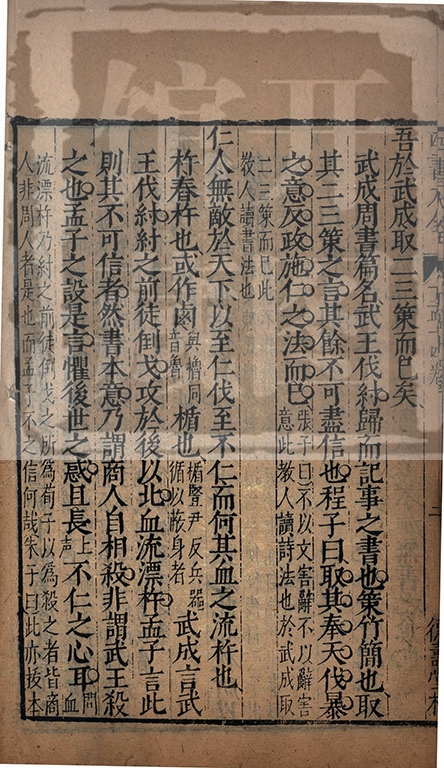 吾於武成取二三策而已矣
武成周書篇名武王伐紂歸而記事之書也策竹簡也取
其二三策之言其餘不可盡信也程子曰取其奉天伐暴
之意反政施仁之法而已張子曰不以文害辭不以辭害
意此教人讀詩法也於武成取
二三策而已此
教人讀書法也
仁人無敵於天下以至仁伐至不仁而何其血之流杵也
杵舂杵也或作鹵與櫓同
音魯楯也楯豎尹反兵器
循以蔽身者武成言武
王伐紂紂之前徒倒戈攻於後以北血流漂杵孟子言此
則其不可信者然書本意乃謂商人自相殺非謂武王殺
之也孟子之設是言懼後世之惑且長上
聲不仁之心耳問
血
流漂杵乃紂之前徒倒戈之所為荀子以為殺之者皆商
人非周人者是也而孟子不之信何哉朱子曰此亦拔本